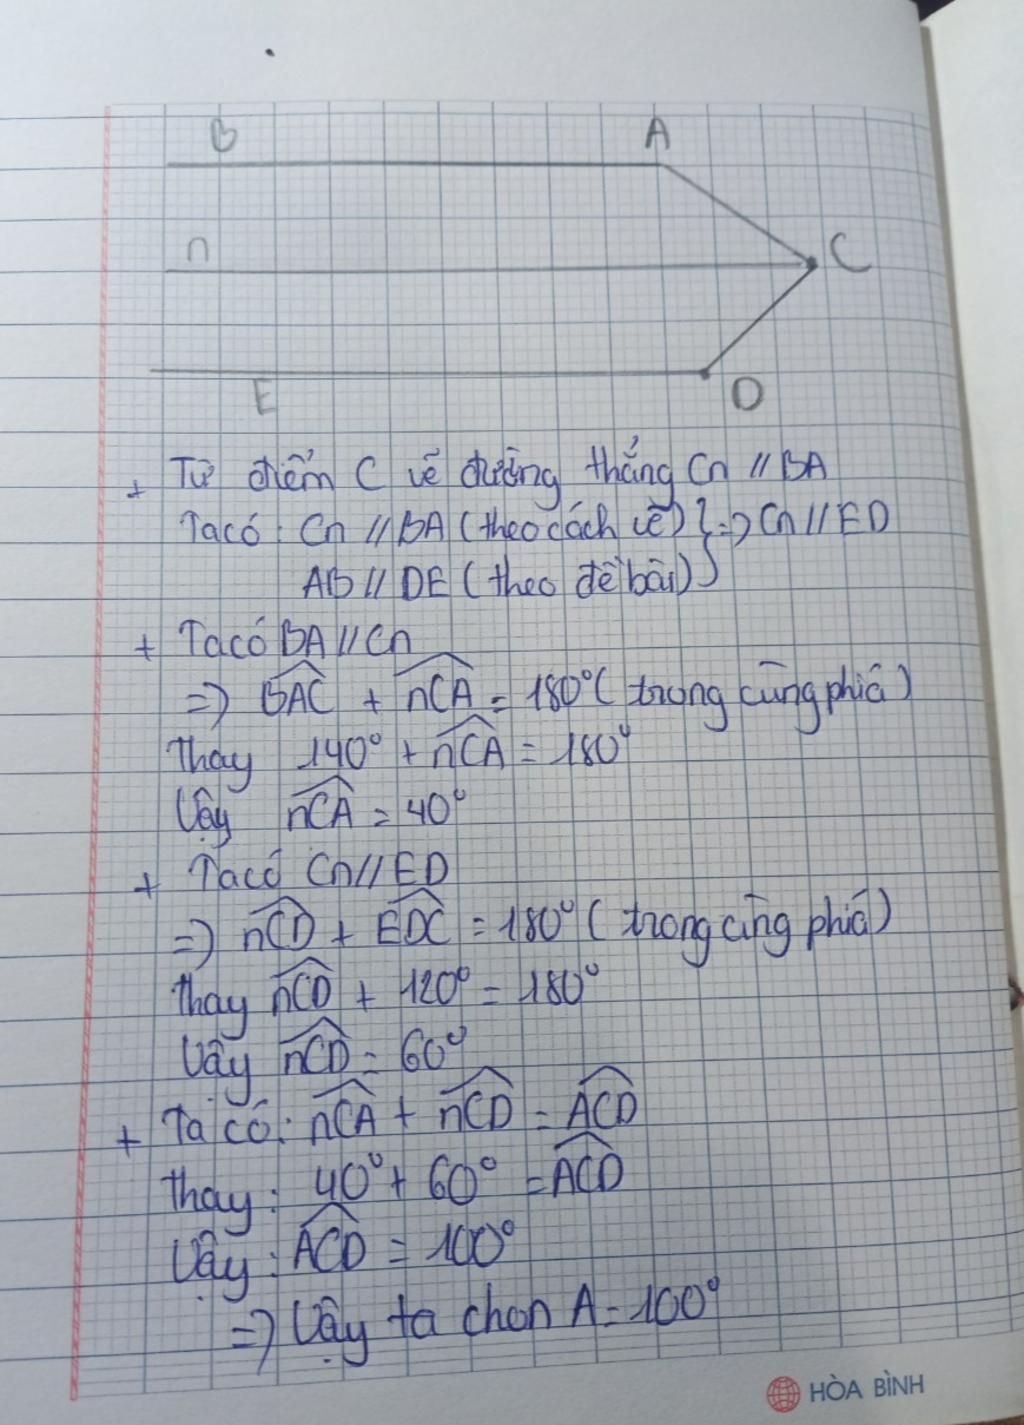 B A
n C
E D
+ Từ điểm C vẽ đường thẳng Cn // BA
Ta có: Cn // BA (theo cách vẽ) } => Cn // ED
AB // DE (theo đề bài)
+ Ta có BA // Cn
=> BAC + nCA = 180° (trong cùng phía)
Thay 140° + nCA = 180°
Vậy nCA = 40°
+ Ta có Cn // ED
=> nCD + EDC = 180° (trong cùng phía)
Thay nCD + 120° = 180°
Vậy nCD = 60°
+ Ta có: nCA + nCD = ACD
Thay: 40° + 60° = ACD
Vậy: ACD = 100°
=> Vậy ta chọn A = 100°
HÒA BÌNH